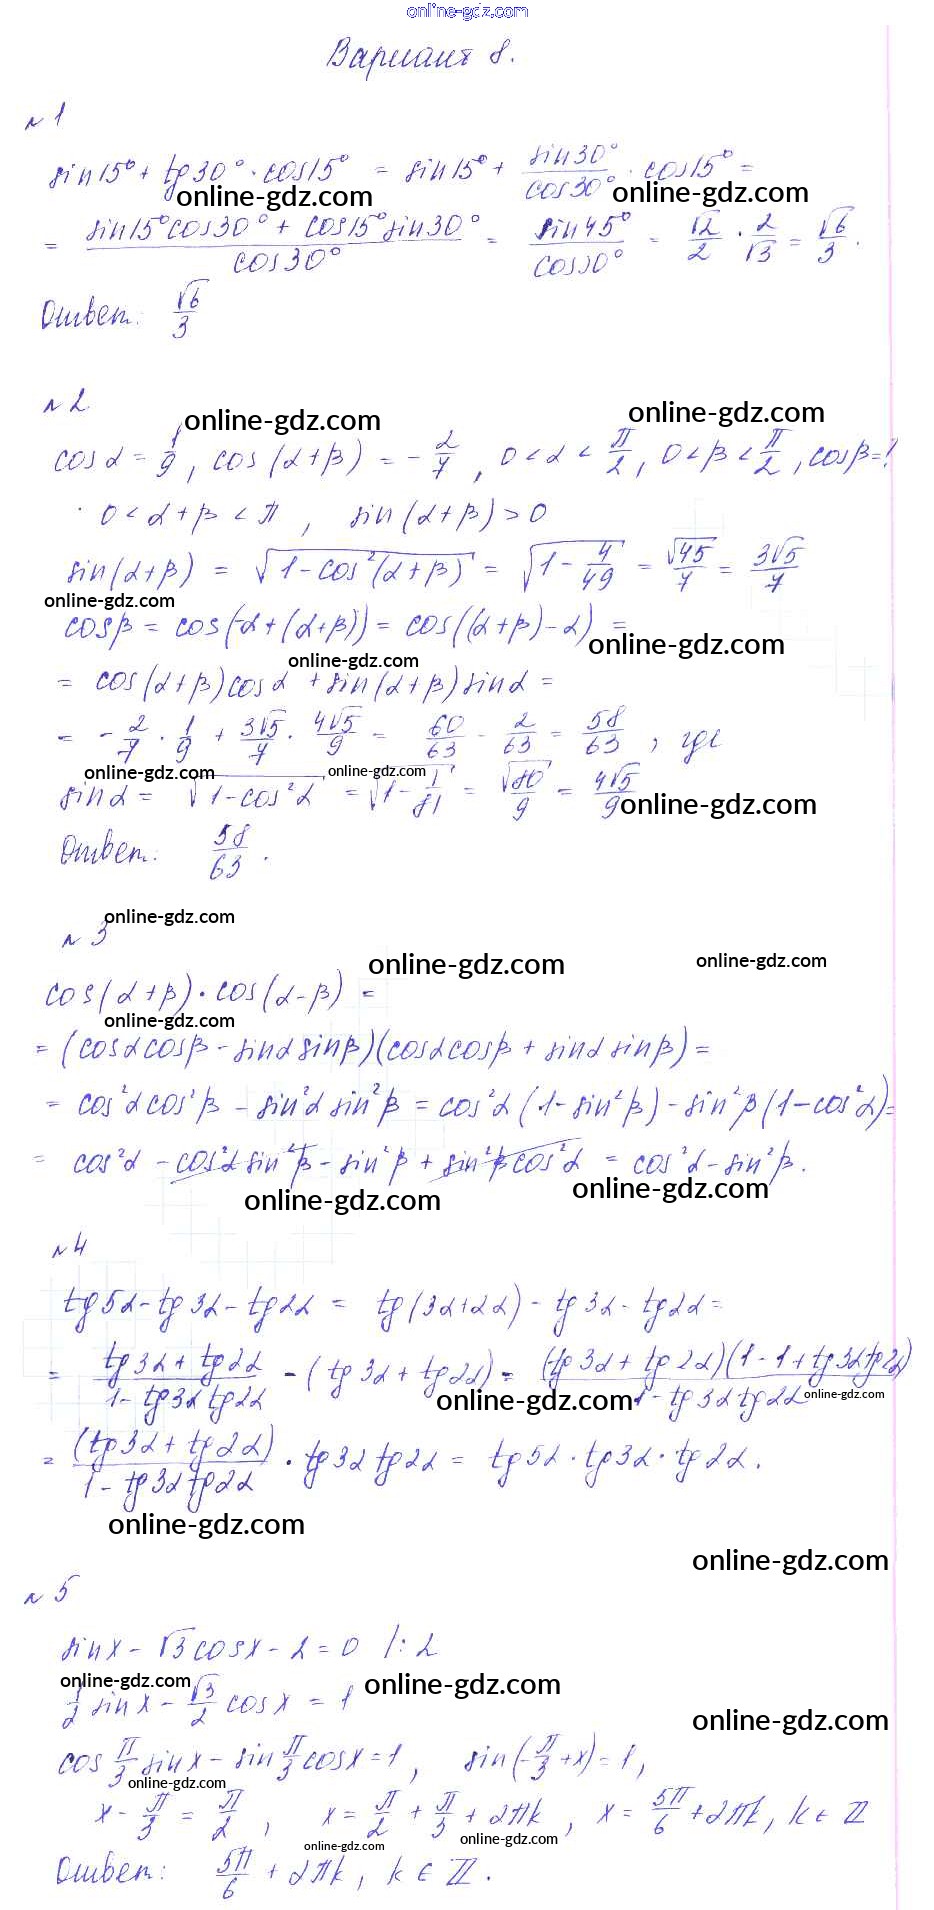 online-gdz.com
Вариант 8.
№1
sin15° + tg30° · cos15° = sin15° + sin30°/cos30° · cos15° =
online-gdz.com online-gdz.com
= (sin15°cos30° + cos15°sin30°)/cos30° = sin45°/cos30° = √2/2 · 2/√3 = √6/3.
Ответ: √6/3
№2
online-gdz.com online-gdz.com
cosα = 1/9, cos(α+β) = -2/7, 0<α<π/2, 0<β<π/2, cosβ=?
0<α+β<π, sin(α+β)>0
sin(α+β) = √(1-cos²(α+β)) = √(1-4/49) = √45/7 = 3√5/7
online-gdz.com
cosβ = cos(-α+(α+β)) = cos((α+β)-α) =
online-gdz.com
online-gdz.com
= cos(α+β)cosα + sin(α+β)sinα =
= -2/7 · 1/9 + 3√5/7 · 4√5/9 = 60/63 - 2/63 = 58/63, где
online-gdz.com online-gdz.com
sinα = √(1-cos²α) = √(1-1/81) = √80/9 = 4√5/9
online-gdz.com
Ответ: 58/63.
online-gdz.com
№3
online-gdz.com online-gdz.com
cos(α+β)·cos(α-β) =
online-gdz.com
= (cosαcosβ - sinαsinβ)(cosαcosβ + sinαsinβ) =
= cos²αcos²β - sin²αsin²β = cos²α(1-sin²β) - sin²β(1-cos²α) =
= cos²α - cos²αsin²β - sin²β + sin²βcos²α = cos²α - sin²β.
online-gdz.com online-gdz.com
№4
tg5α - tg3α - tg2α = tg(3α+2α) - tg3α - tg2α =
= (tg3α + tg2α)/(1 - tg3αtg2α) - (tg3α + tg2α) = (tg3α + tg2α)(1-1+tg3αtg2α)/(1-tg3αtg2α)
online-gdz.com online-gdz.com
= (tg3α + tg2α)/(1-tg3αtg2α) · tg3αtg2α = tg5α · tg3α · tg2α.
online-gdz.com
online-gdz.com
№5
sinx - √3cosx - 2 = 0 /:2
online-gdz.com online-gdz.com
1/2 sinx - √3/2 cosx = 1
online-gdz.com
cos π/3 sinx - sin π/3 cosx = 1, sin(-π/3+x) = 1,
online-gdz.com
x - π/3 = π/2, x = π/2 + π/3 + 2πk, x = 5π/6 + 2πk, k∈Z
online-gdz.com online-gdz.com
Ответ: 5π/6 + 2πk, k∈Z.